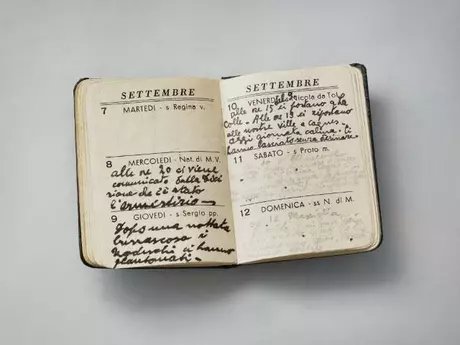 SETTEMBRE
7 MARTEDI - s Regina v.
8 MERCOLEDI - Nat. di M. V.
alle ore 20 ci viene
comunicato della
zione che c'è stato
l'armistizio -
9 GIOVEDI - s Sergio pp.
Dopo una nottata
burrascosa i
tedeschi ci hanno
piantonati -
SETTEMBRE
10 VENERDI Nicola da Tol.
alle ore 15 ci portano
Colle - Alle ore 19 ci riportano
alle nostre ville
Oggi giornata calma - Ci
hanno lasciato senza
11 SABATO - s Proto m.
12 DOMENICA - ss N. di M.